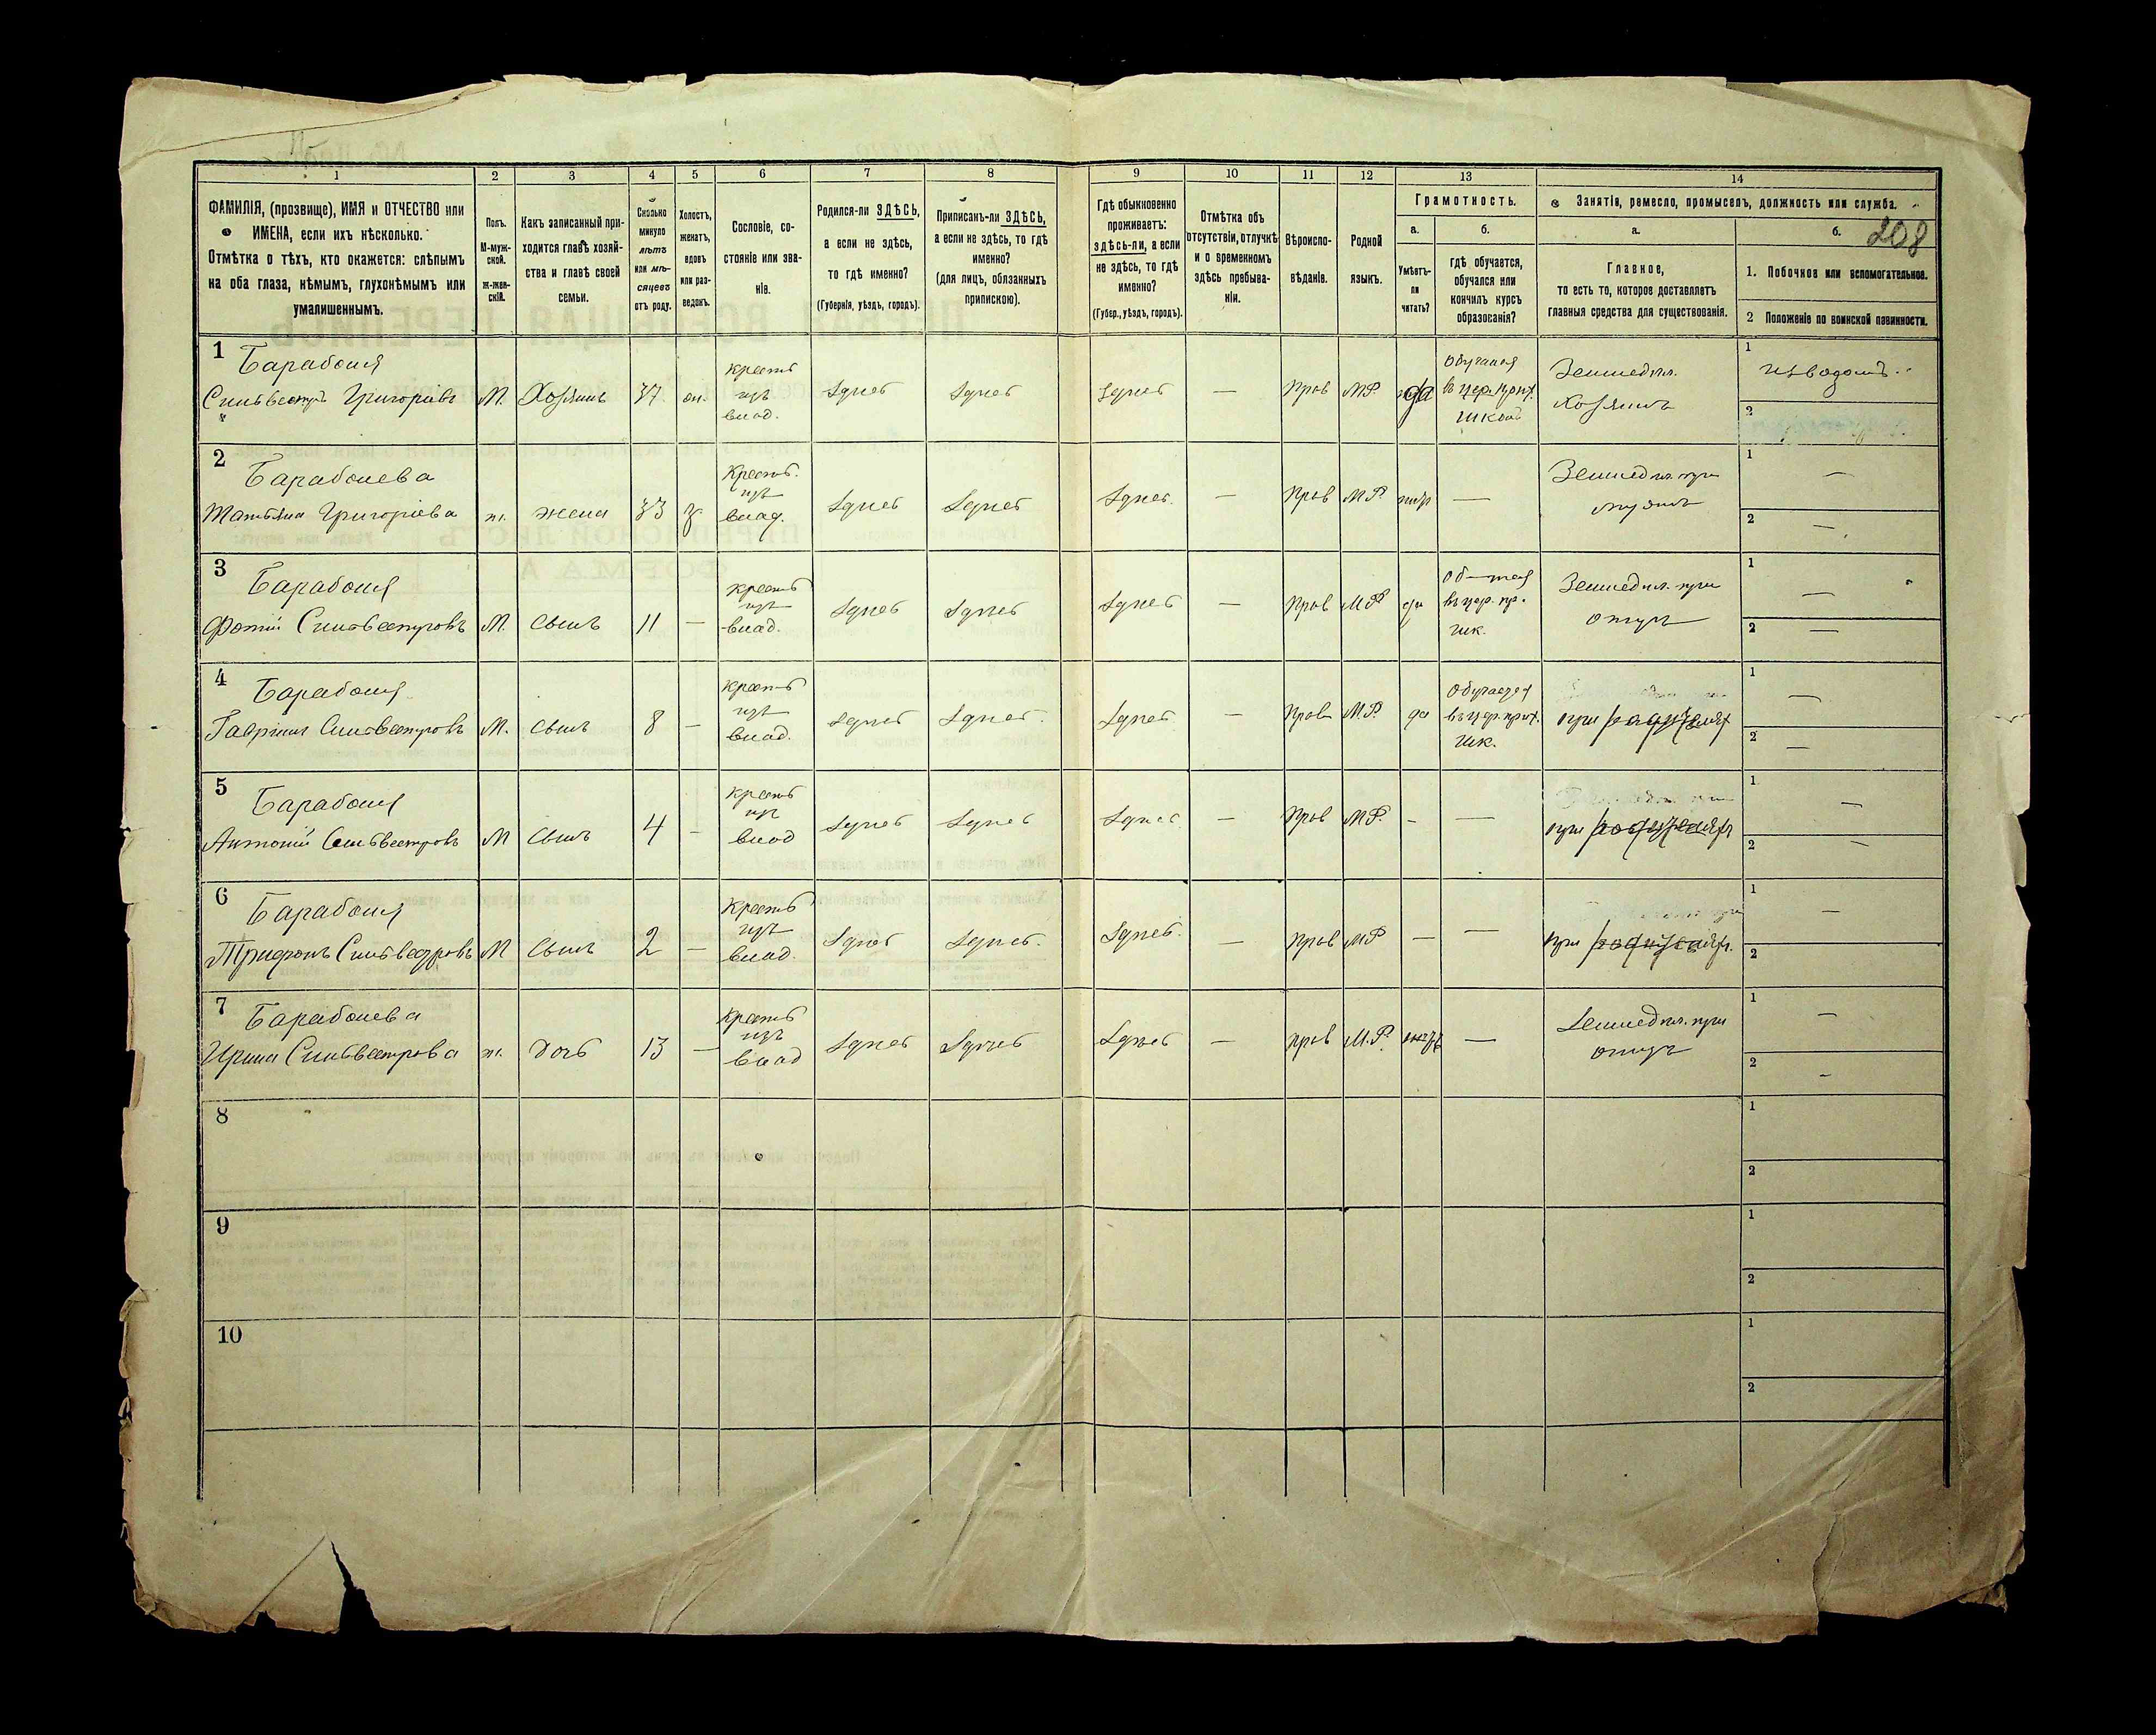 208
1 2 3 4 5 6 7 8 9 10 11 12 13 14
ФАМИЛІЯ, (прозвище), ИМЯ и ОТЧЕСТВО или
ИМЕНА, если ихъ нѣсколько.
Отмѣтка о тѣхъ, кто окажется: слѣпымъ
на оба глаза, нѣмымъ, глухонѣмымъ или
умалишеннымъ.
Полъ.
М-муж-
ской.
ж-жен-
скій.
Какъ записанный при-
ходится главѣ хозяй-
ства и главѣ своей
семьи.
Сколько
минуло
лѣтъ
или мѣ-
сяцевъ
отъ роду.
Холостъ,
женатъ,
вдовъ
или раз-
веденъ.
Сословіе, со-
стояніе или зва-
ніе.
Родился-ли ЗДѢСЬ,
а если не здѣсь,
то гдѣ именно?
(Губернія, уѣздъ, городъ).
Приписанъ-ли ЗДѢСЬ,
а если не здѣсь, то гдѣ
именно?
(для лицъ, обязанныхъ
припискою).
Гдѣ обыкновенно
проживаетъ:
здѣсь-ли, а если
не здѣсь, то гдѣ
именно?
(Губер., уѣздъ, городъ).
Отмѣтка объ
отсутствіи, отлучкѣ
и о временномъ
здѣсь пребыва-
ніи.
Вѣроиспо-
вѣданіе.
Родной
языкъ.
Грамотность.
а.
Умѣетъ-
ли
читать?
б.
гдѣ обучается,
обучался или
кончилъ курсъ
образованія?
Занятіе, ремесло, промыселъ, должность или служба.
а.
Главное,
то есть то, которое доставляетъ
главныя средства для существованія.
б.
1. Побочное или вспомогательное.
2 Положеніе по воинской повинности.
1
Барабоня
Сильвестръ Григоріевъ М. Хозяинъ 37 крестъ изъ влад. здѣсь здѣсь здѣсь — прав МР. да
школѣ
Земледѣл.
Хозяинъ
1
извозомъ.
2
2
Барабонева
Татьяна Григоріева ж. жена 33 з. крестъ. изъ влад. здѣсь здѣсь здѣсь. — прав МР. —
Земледѣл. при
мужѣ
1 —
2 —
3
Барабоня
Фотій Сильвестровъ М. сынъ 11 — крестъ изъ влад. здѣсь здѣсь здѣсь — прав МР да
въ цер. пр.
шк.
Земледѣл. при
отцѣ
1 —
2 —
4
Барабоня
Гавріилъ Сильвестровъ М. сынъ 8 — крестъ изъ влад. здѣсь здѣсь. здѣсь — прав М.Р. да
Обучается
въ цер. прих.
шк.
при родителях
1 —
2 —
5
Барабоня
Антоній Сильвестровъ М сынъ 4 — крестъ изъ влад здѣсь здѣсь здѣсь — прав МР. - —
при родителях
1 —
2 —
6
Барабоня
Трифонъ Сильвестровъ М сынъ 2 — крестъ изъ влад. здѣсь здѣсь. здѣсь. — прав МР — —
при родителях.
1 —
2
7
Барабонева
Ирина Сильвестрова ж. дочь 13 — крестъ изъ влад здѣсь здѣсь здѣсь — прав М.Р. —
Земледѣл. при
отцѣ
1 —
2 -
8
1
2
9
1
2
10
1
2